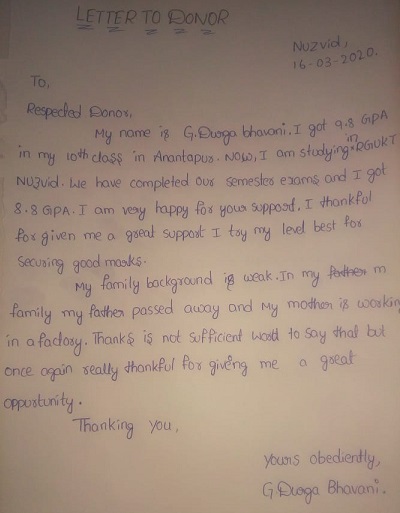 LETTER TO DONOR
Nuzvid,
16-03-2020.
To,
Respected Donor,
My name is G.Durga bhavani. I got 9.8 GPA
in my 10th class in Anantapur. NOW, I am studying in RGUKT
NUZvid. We have completed our semester exams and I got
8.8 GPA. I am very happy for your support. I thankful
for given me a great support I try my level best for
securing good marks.
My family background is weak. In my father m
family my father passed away and My mother is workin
in a factory. Thanks is not sufficient word to say that but
once again really thankful for giving me a great
oppurtunity.
Thanking you,
yours obediently,
G.Durga Bhavani.